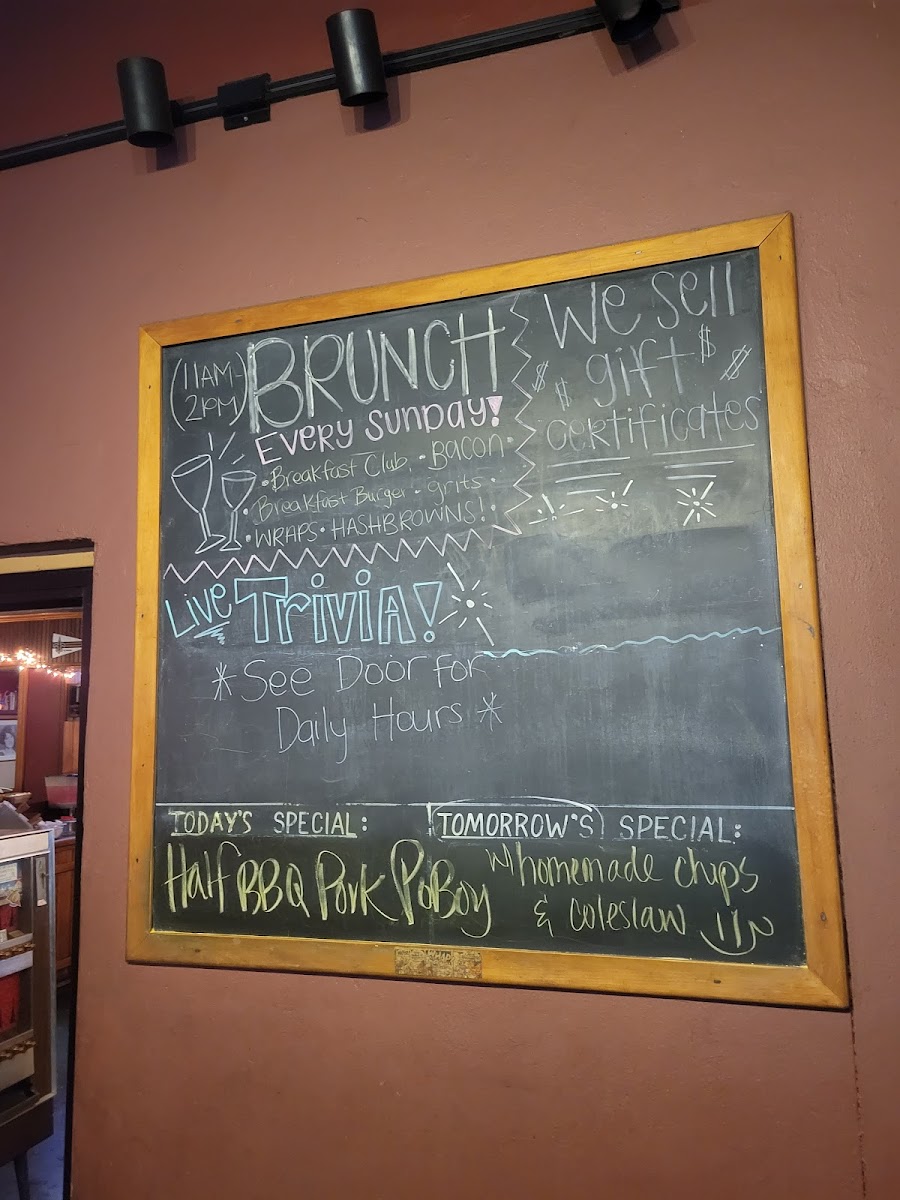 (11AM-
2PM)
BRUNCH
Every Sunday!
•Breakfast Club. •Bacon•
Breakfast Burger • grits •
•WRAPS• HASHBROWNS!•
We sell
gift
certificates
Live Trivia!
*See Door for
Daily Hours *
TODAY'S SPECIAL:
Half BBQ Pork PoBoy
TOMORROW'S SPECIAL:
w/ homemade chips
& coleslaw